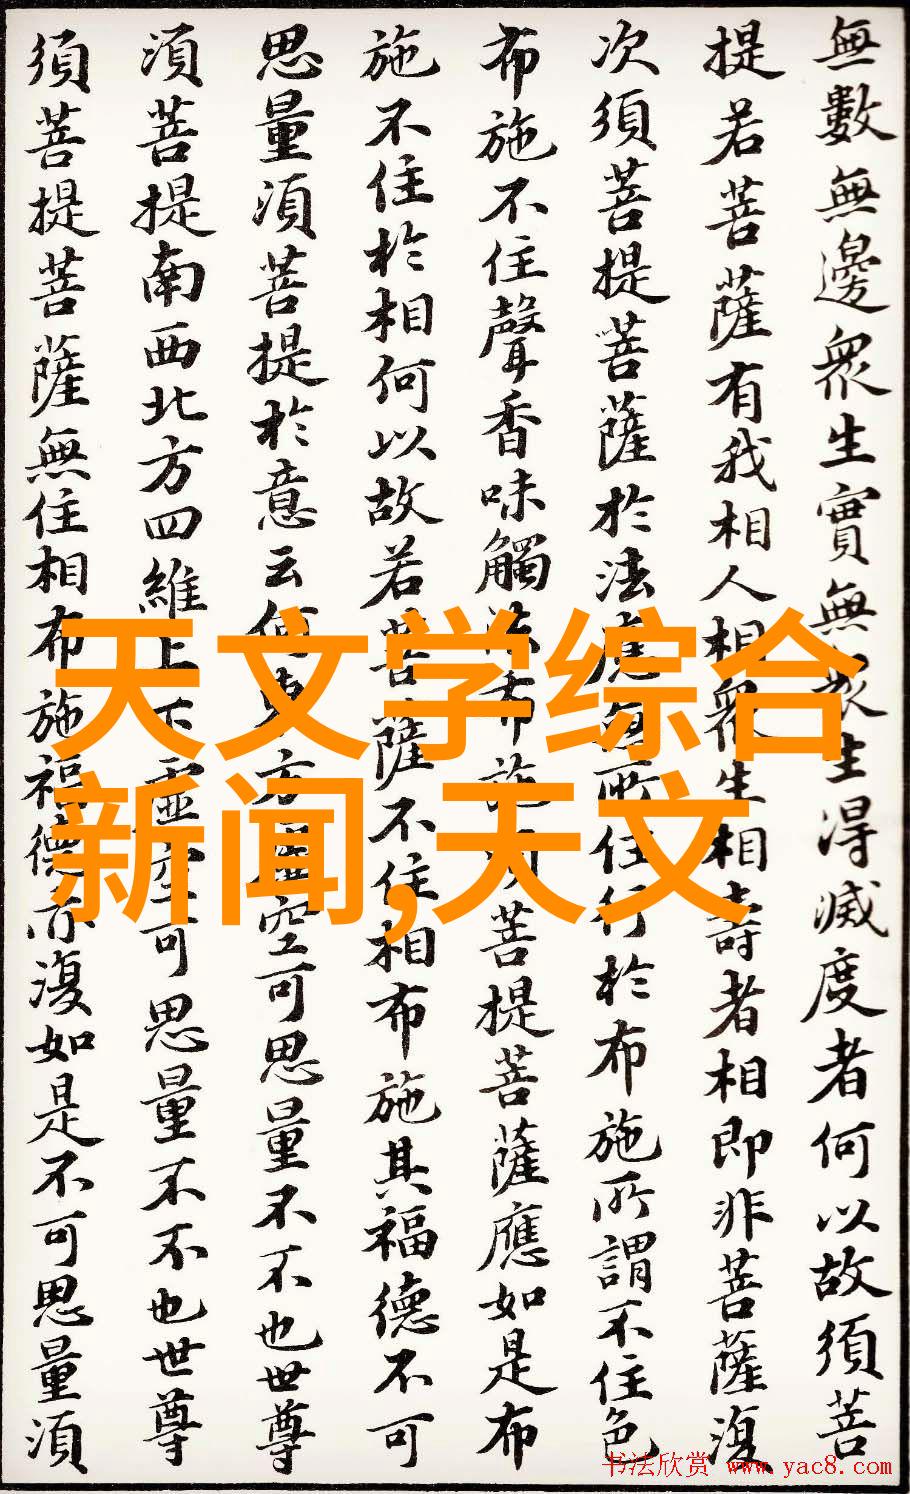 無數無邊衆生實無衆生得滅度者何以故須菩
提若菩薩有我相人相衆生相壽者相即非菩薩復
次須菩提菩薩於法應無所住行於布施所謂不住色
布施不住聲香味觸法布施須菩提菩薩應如是布
施不住於相何以故若菩薩不住相布施其福德不可
思量須菩提於意云何東方虛空可思量不不也世尊
須菩提南西北方四維上下虛空可思量不不也世尊
須菩提菩薩無住相布施福德亦復如是不可思量須
天文学综合
新闻,天文
书法欣赏 www.yac8.com